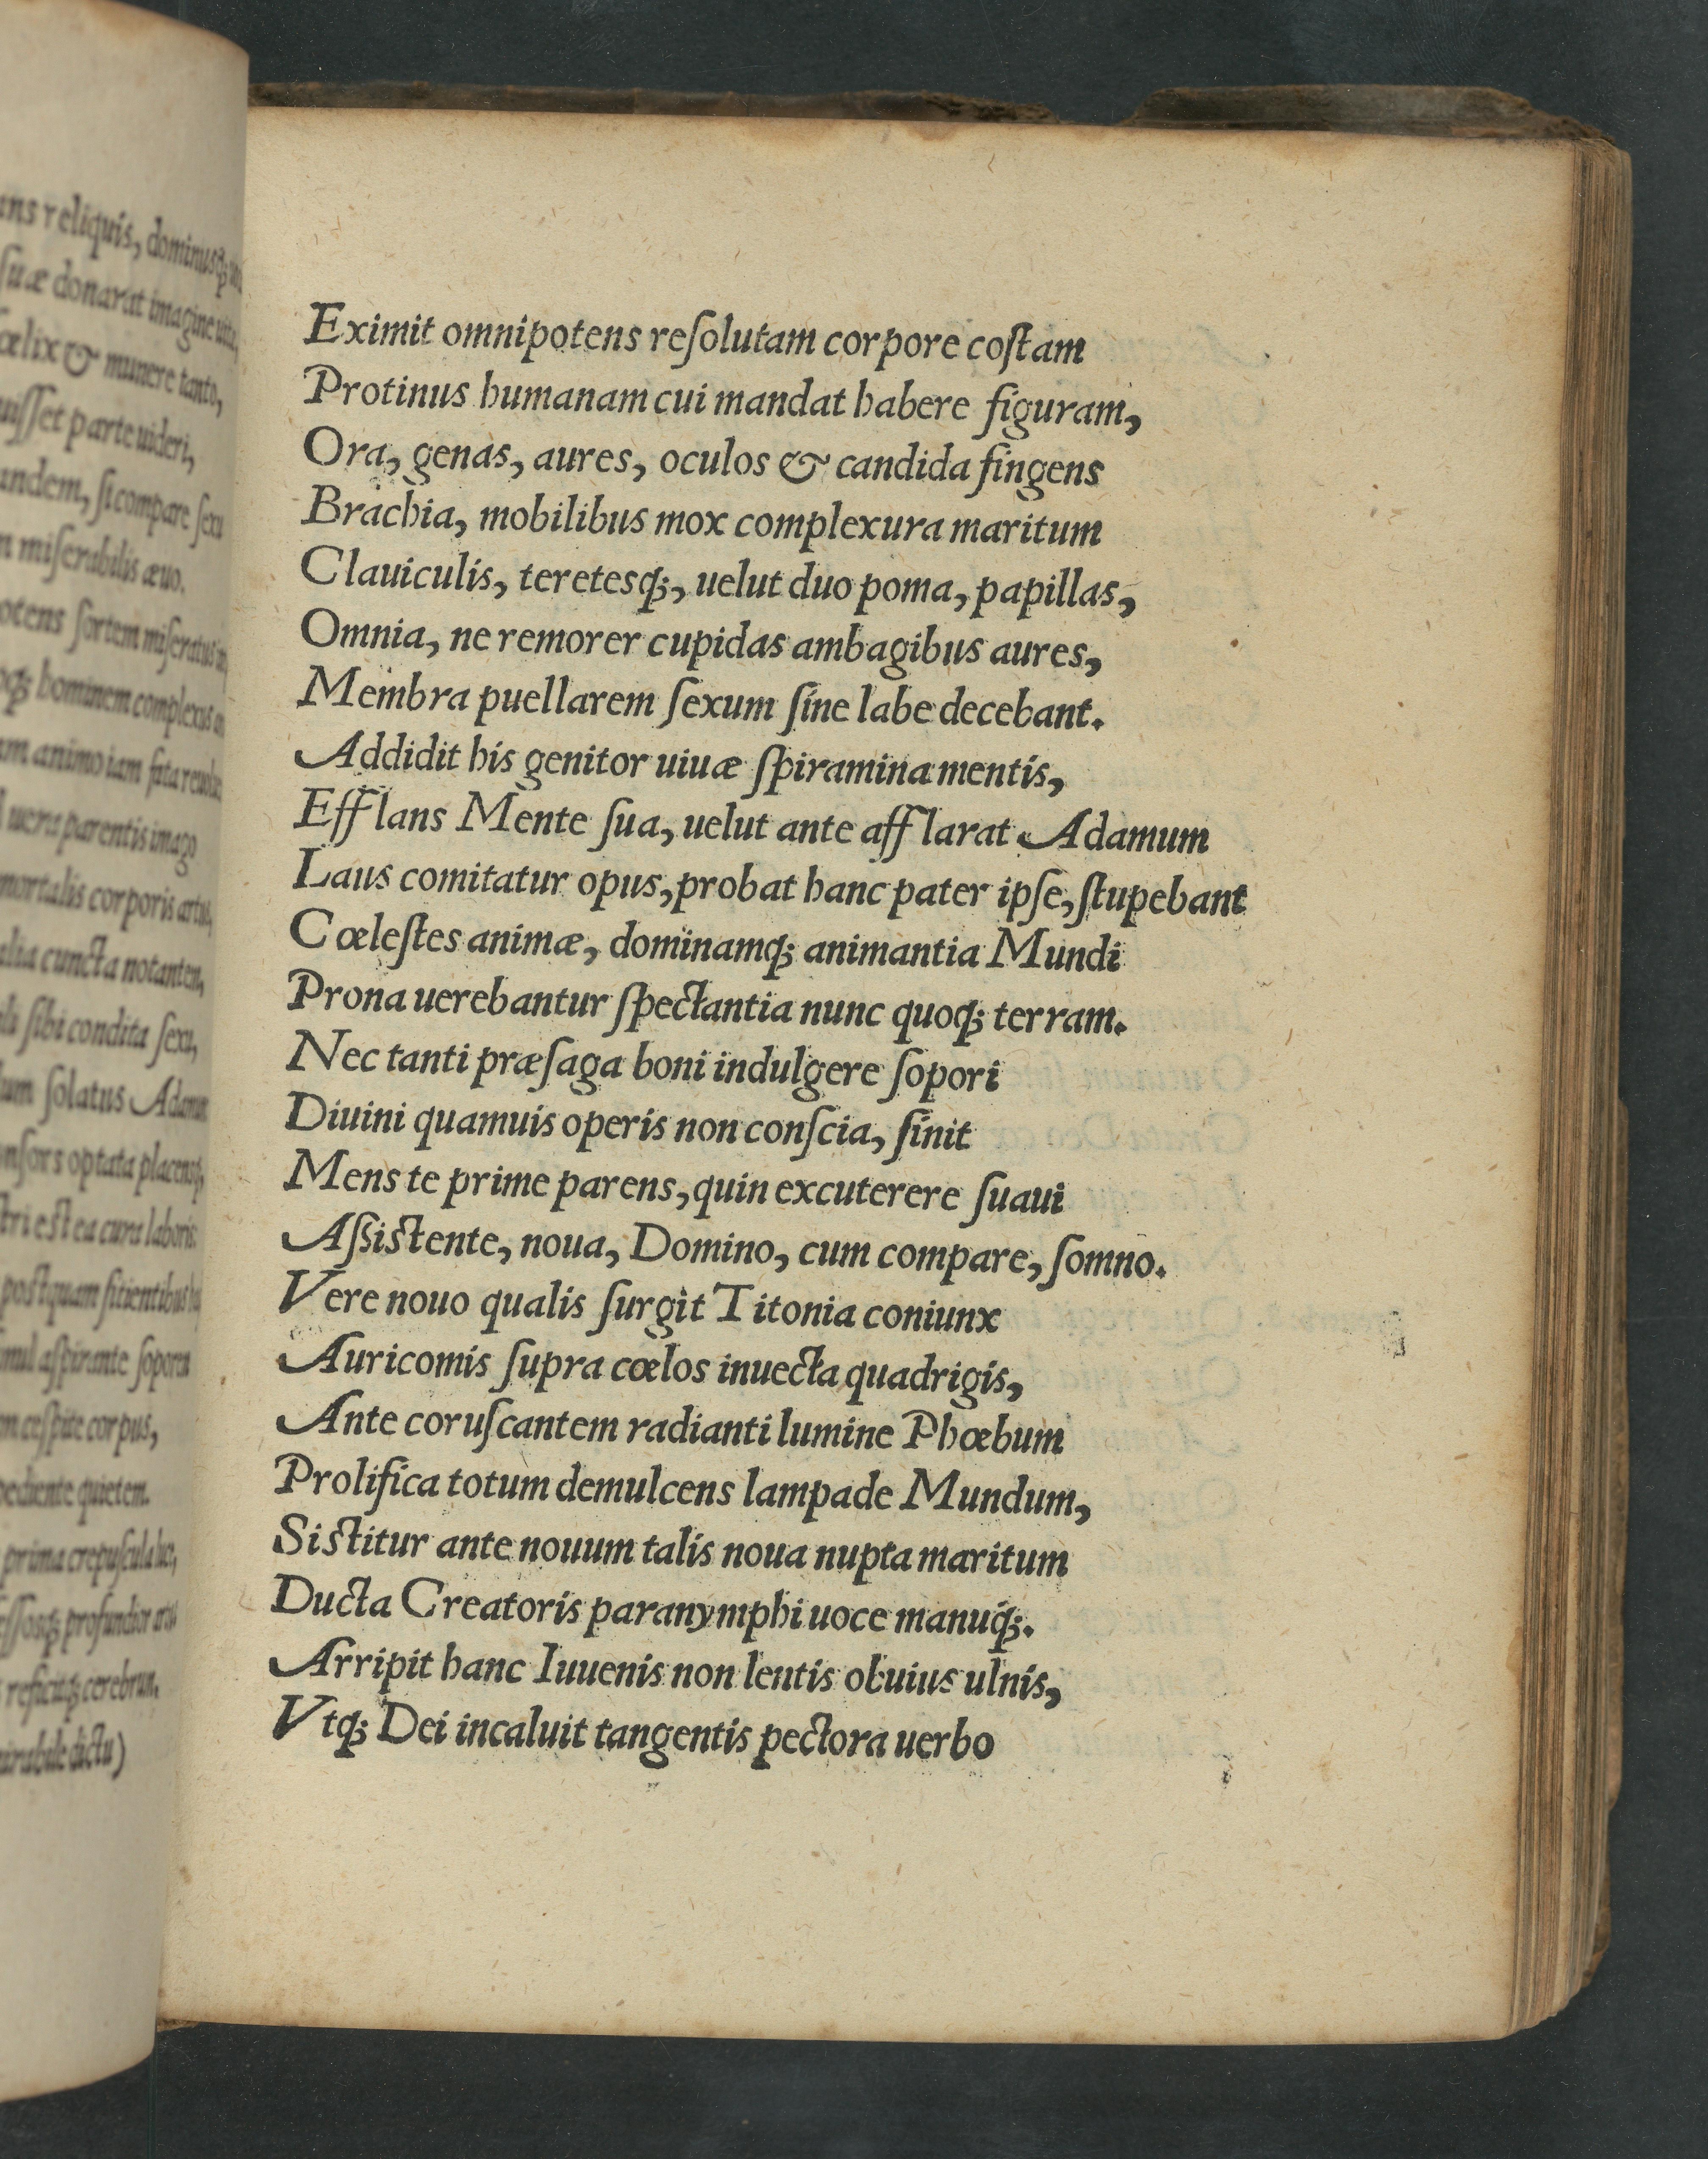 ns reliquis, dominusq;
suæ donarat imagine
œlix & munere tanto,
uisset parte uideri,
undem, si compare sexu
miserabilis æuo.
otens sortem miseratus
q; hominem complexus
animo iam fata
uera parentis imago
mortalis corporis artus,
cuncta notanten,
sibi condita sexu,
solatus Adamum
nsors optata placensq;
tri est ea cura laboris
postquam sitientibus
mul aspirante soporem
cespite corpus,
pediente quietem.
prima crepuscula
essosq; profundior
reficitq; cerebrum,
mirabile dictu)
Eximit omnipotens reſolutam corpore coſtam
Protinus humanam cui mandat habere figuram,
Ora, genas, aures, oculos & candida fingens
Brachia, mobilibus mox complexura maritum
Clauiculis, teretesq;, uelut duo poma, papillas,
Omnia, ne remorer cupidas ambagibus aures,
Membra puellarem ſexum ſine labe decebant.
Addidit his genitor uiuæ ſpiramina mentis,
Efflans Mente ſua, uelut ante afflarat Adamum
Laus comitatur opus, probat hanc pater ipſe, ſtupebant
Cœleſtes animæ, dominamq; animantia Mundi
Prona uerebantur ſpectantia nunc quoq; terram.
Nec tanti præſaga boni indulgere ſopori
Diuini quamuis operis non conſcia, ſinit
Mens te prime parens, quin excuterere ſuaui
Aſsiſtente, noua, Domino, cum compare, ſomno.
Vere nouo qualis ſurgit Titonia coniunx
Auricomis ſupra cœlos inuecta quadrigis,
Ante coruſcantem radianti lumine Phœbum
Prolifica totum demulcens lampade Mundum,
Siſtitur ante nouum talis noua nupta maritum
Ducta Creatoris paranymphi uoce manuq́;.
Arripit hanc Iuuenis non lentis obuius ulnis,
Vtq; Dei incaluit tangentis pectora uerbo